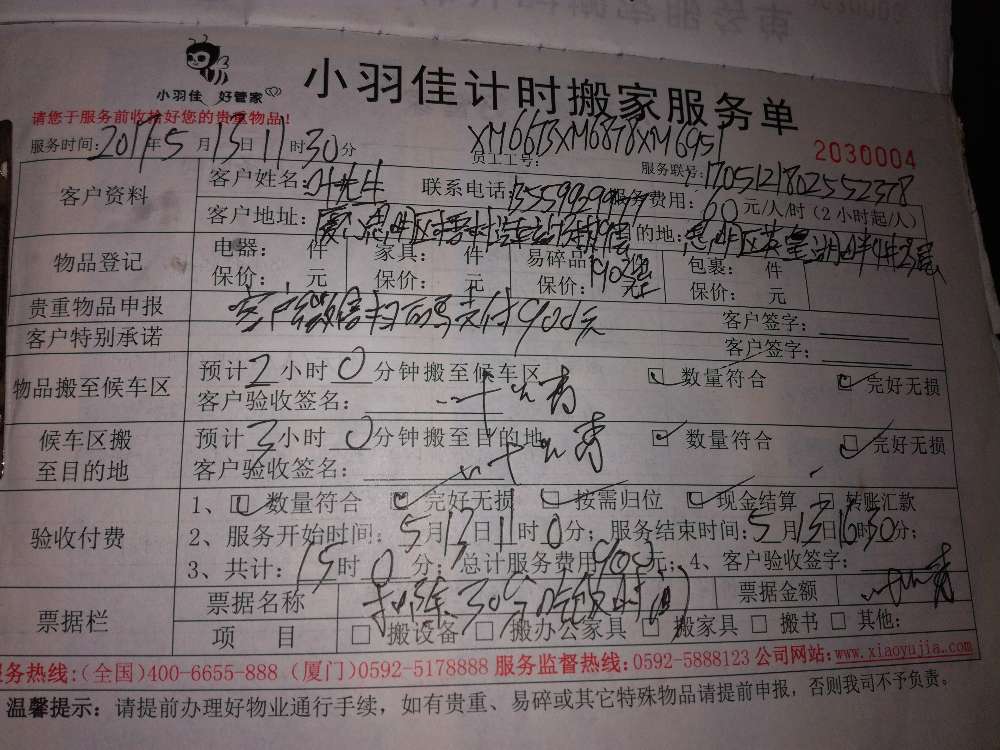 小羽佳 好管家
小羽佳计时搬家服务单
请您于服务前收捡好您的贵重物品!
2030004
服务时间: 2017年5月13日11时30分
员工工号: XM6613XM6878XM6951
服务联号: 1705121802552378
客户资料
客户姓名: 叶先生 联系电话: 服务费用: 60元/人/时(2小时起/人)
客户地址: 目的地:
物品登记
电器: 件 家具: 件 易碎品 包裹: 件
保价: 元 保价: 元 保价: 元 保价: 元
贵重物品申报 客户签字:
客户特别承诺 客户签字:
物品搬至候车区
预计2小时0分钟搬至候车区 数量符合 完好无损
客户验收签名:
候车区搬至目的地
预计3小时0分钟搬至目的地 数量符合 完好无损
客户验收签名:
验收付费
1、数量符合 完好无损 按需归位 现金结算 转账汇款
2、服务开始时间: 5月13日11时0分; 服务结束时间: 5月13日16时30分;
3、共计: 15时0分; 总计服务费用900元; 4、客户验收签字:
票据栏
票据名称 扣除30分 票据金额
项 目 搬设备 搬办公家具 搬家具 搬书 其他:
服务热线:(全国)400-6655-888 (厦门)0592-5178888 服务监督热线:0592-5888123 公司网站:www.xiaoyujia.com
温馨提示: 请提前办理好物业通行手续,如有贵重、易碎或其它特殊物品请提前申报,否则我司不予负责。